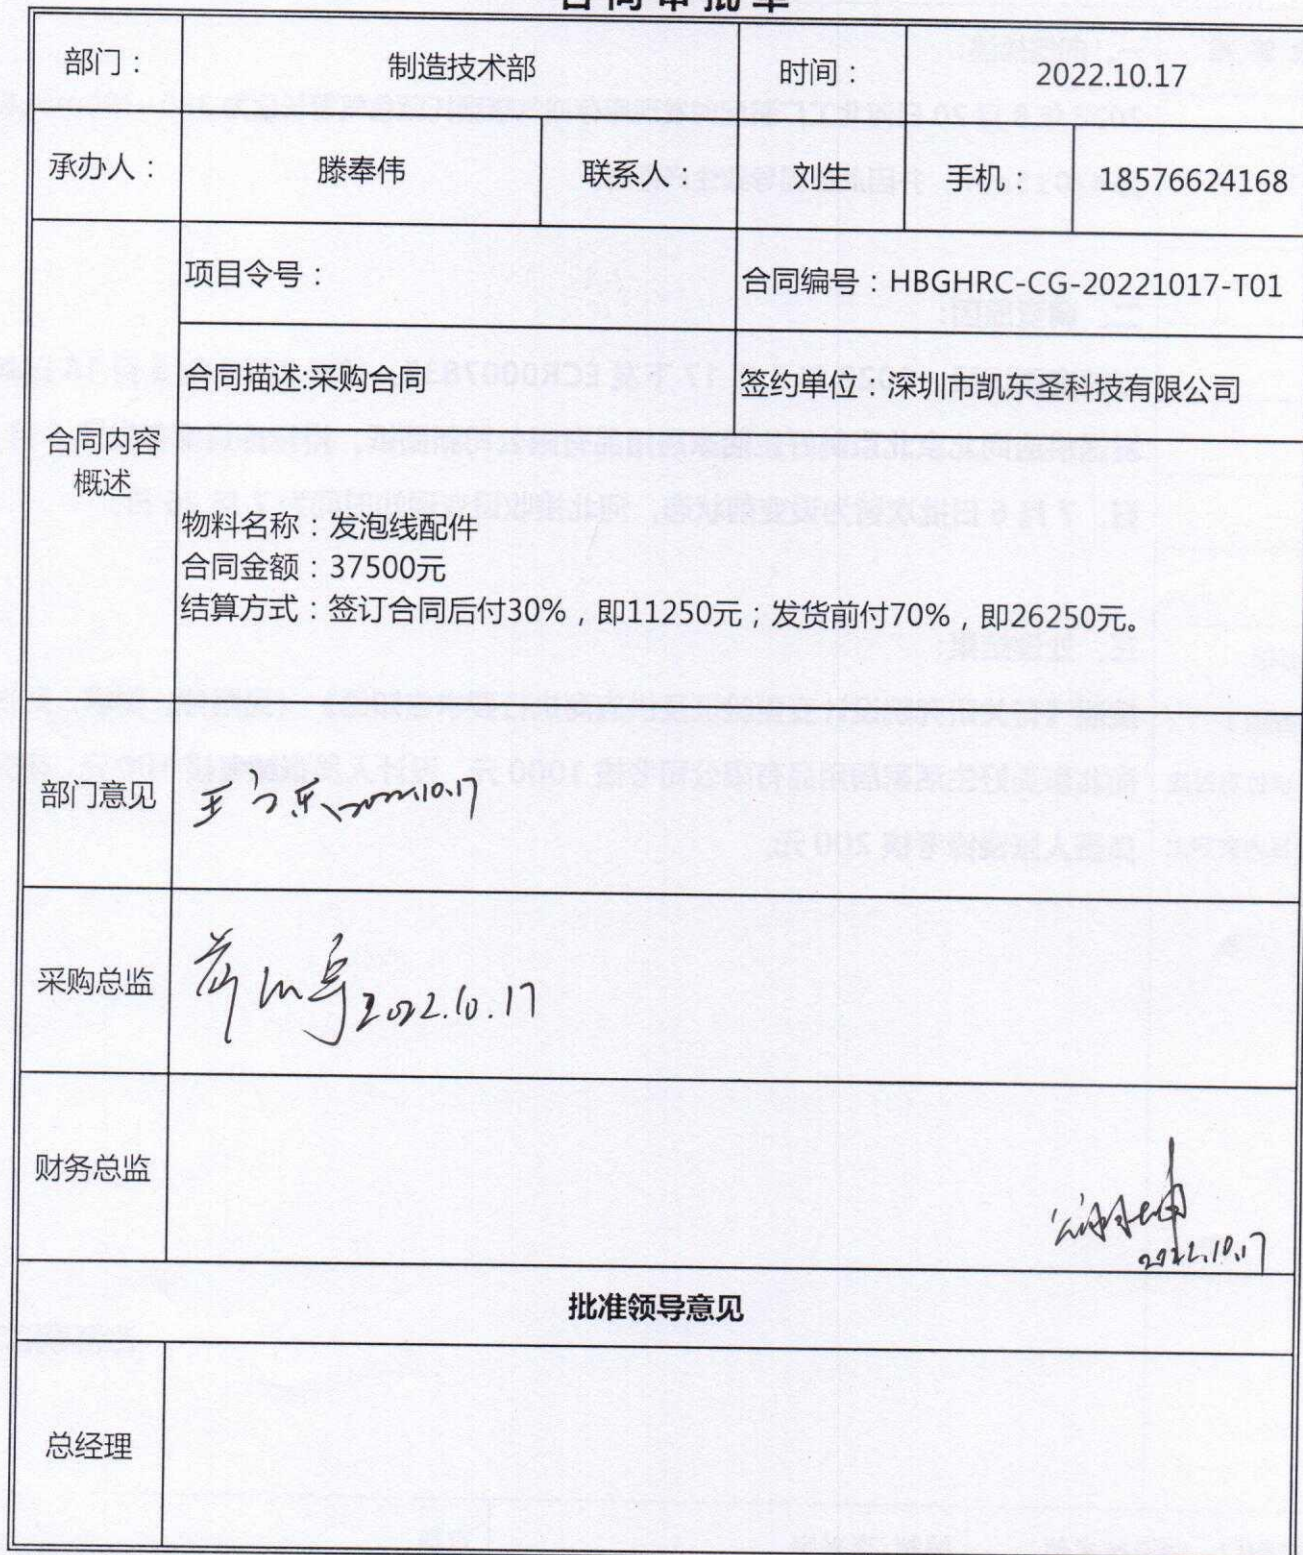 合同审批单
部门： 制造技术部 时间： 2022.10.17
承办人： 滕奉伟 联系人： 刘生 手机： 18576624168
项目令号： 合同编号：HBGHRC-CG-20221017-T01
合同描述:采购合同 签约单位：深圳市凯东圣科技有限公司
合同内容
概述
物料名称：发泡线配件
合同金额：37500元
结算方式：签订合同后付30%，即11250元；发货前付70%，即26250元。
部门意见 2022.10.17
采购总监 2022.10.17
财务总监
2022.10.17
批准领导意见
总经理